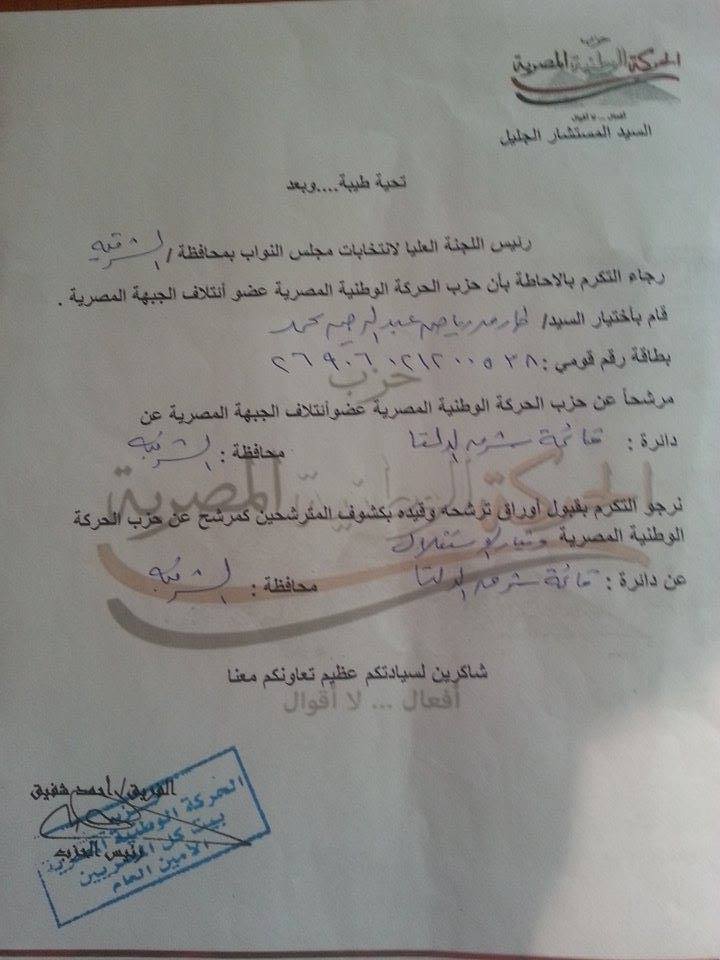 حزب
الحركة الوطنية المصرية
أفعال ... لا أقوال
السيد المستشار الجليل
تحية طيبة....وبعد
رئيس اللجنة العليا لانتخابات مجلس النواب بمحافظة / الشرقية
رجاء التكرم بالاحاطة بأن حزب الحركة الوطنية المصرية عضو أئتلاف الجبهة المصرية .
قام بأختيار السيد/ طارق رياض عبد الرحيم محمد
بطاقة رقم قومي : ٢٦٩٠٦٠٢١٢٠٠٥٣٨
حزب
مرشحاً عن حزب الحركة الوطنية المصرية عضوأئتلاف الجبهة المصرية عن
دائرة : قائمة شرق الدلتا محافظة : الشرقية
الحركة الوطنية المصرية
نرجو التكرم بقبول أوراق ترشحه وقيده بكشوف المترشحين كمرشح عن حزب الحركة
الوطنية المصرية وتيار الاستقلال
عن دائرة : قائمة شرق الدلتا محافظة : الشرقية
شاكرين لسيادتكم عظيم تعاونكم معنا
أفعال ... لا أقوال
الفريق/ أحمد شفيق
رئيس الحزب
الحركة الوطنية المصرية
بيت كل المصريين
الأمين العام